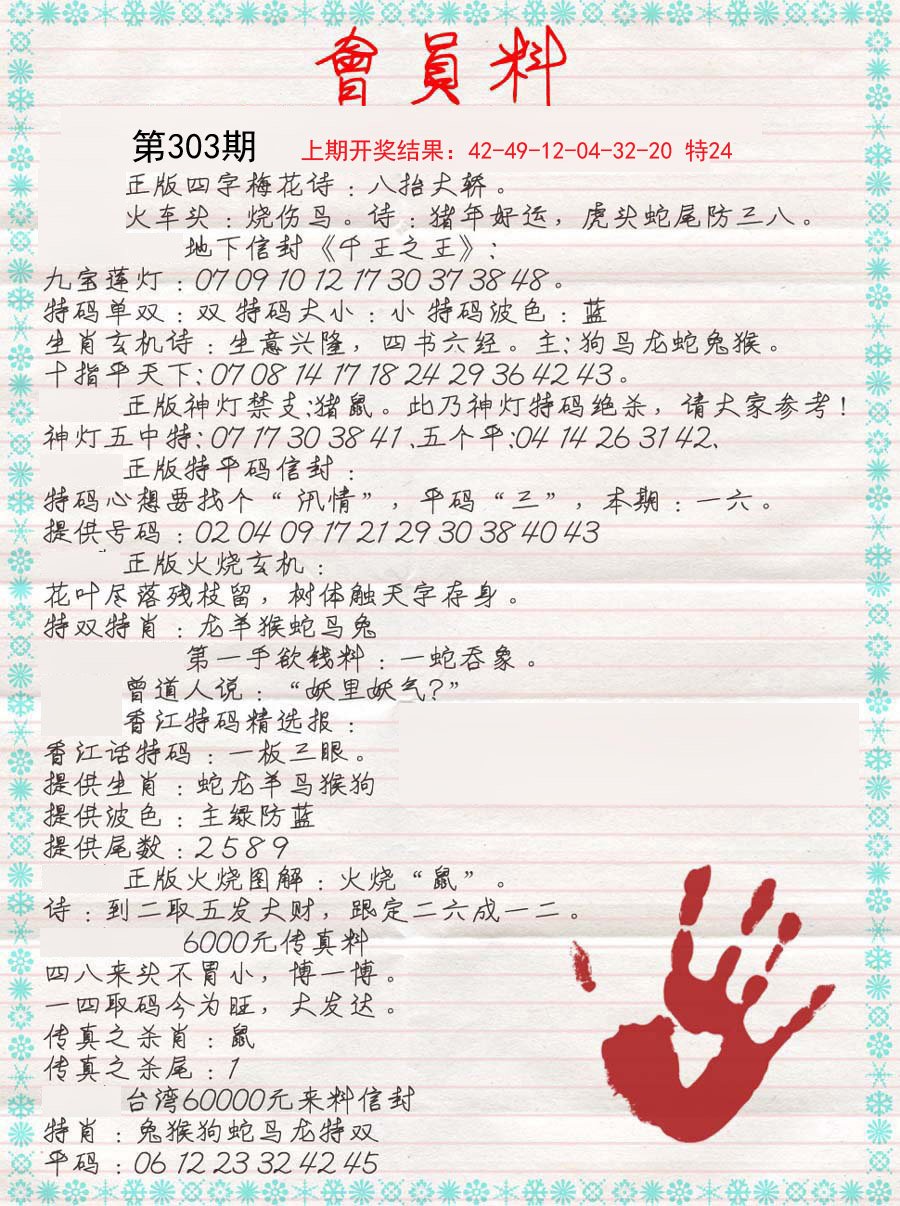 會員料
第303期 上期开奖结果：42-49-12-04-32-20 特24
正版四字梅花诗：八抬大轿。
火车头：烧伤鸟。诗：猪年好运，虎头蛇尾防三八。
地下信封《千王之王》：
九宝莲灯：07 09 10 12 17 30 37 38 48。
特码单双：双 特码大小：小 特码波色：蓝
生肖玄机诗：生意兴隆，四书六经。主：狗马龙蛇兔猴。
十指平天下：07 08 14 17 18 24 29 36 42 43。
正版神灯禁支：猪鼠。此乃神灯特码绝杀，请大家参考！
神灯五中特：07 17 30 38 41、五个平：04 14 26 31 42、
正版特平码信封：
特码心想要找个“汛情”，平码“三”，本期：一六。
提供号码：02 04 09 17 21 29 30 38 40 43
正版火烧玄机：
花叶尽落残枝留，树体触天字存身。
特双特肖：龙羊猴蛇马兔
第一手欲钱料：一蛇吞象。
曾道人说：“妖里妖气？”
香江特码精选报：
香江话特码：一板三眼。
提供生肖：蛇龙羊马猴狗
提供波色：主绿防蓝
提供尾数：2 5 8 9
正版火烧图解：火烧“鼠”。
诗：到二取五发大财，跟定二六成一二。
6000元传真料
四八来头不胃小，博一博。
一四取码今为旺，大发达。
传真之杀肖：鼠
传真之杀尾：1
台湾60000元来料信封
特肖：兔猴狗蛇马龙特双
平码：06 12 23 32 42 45